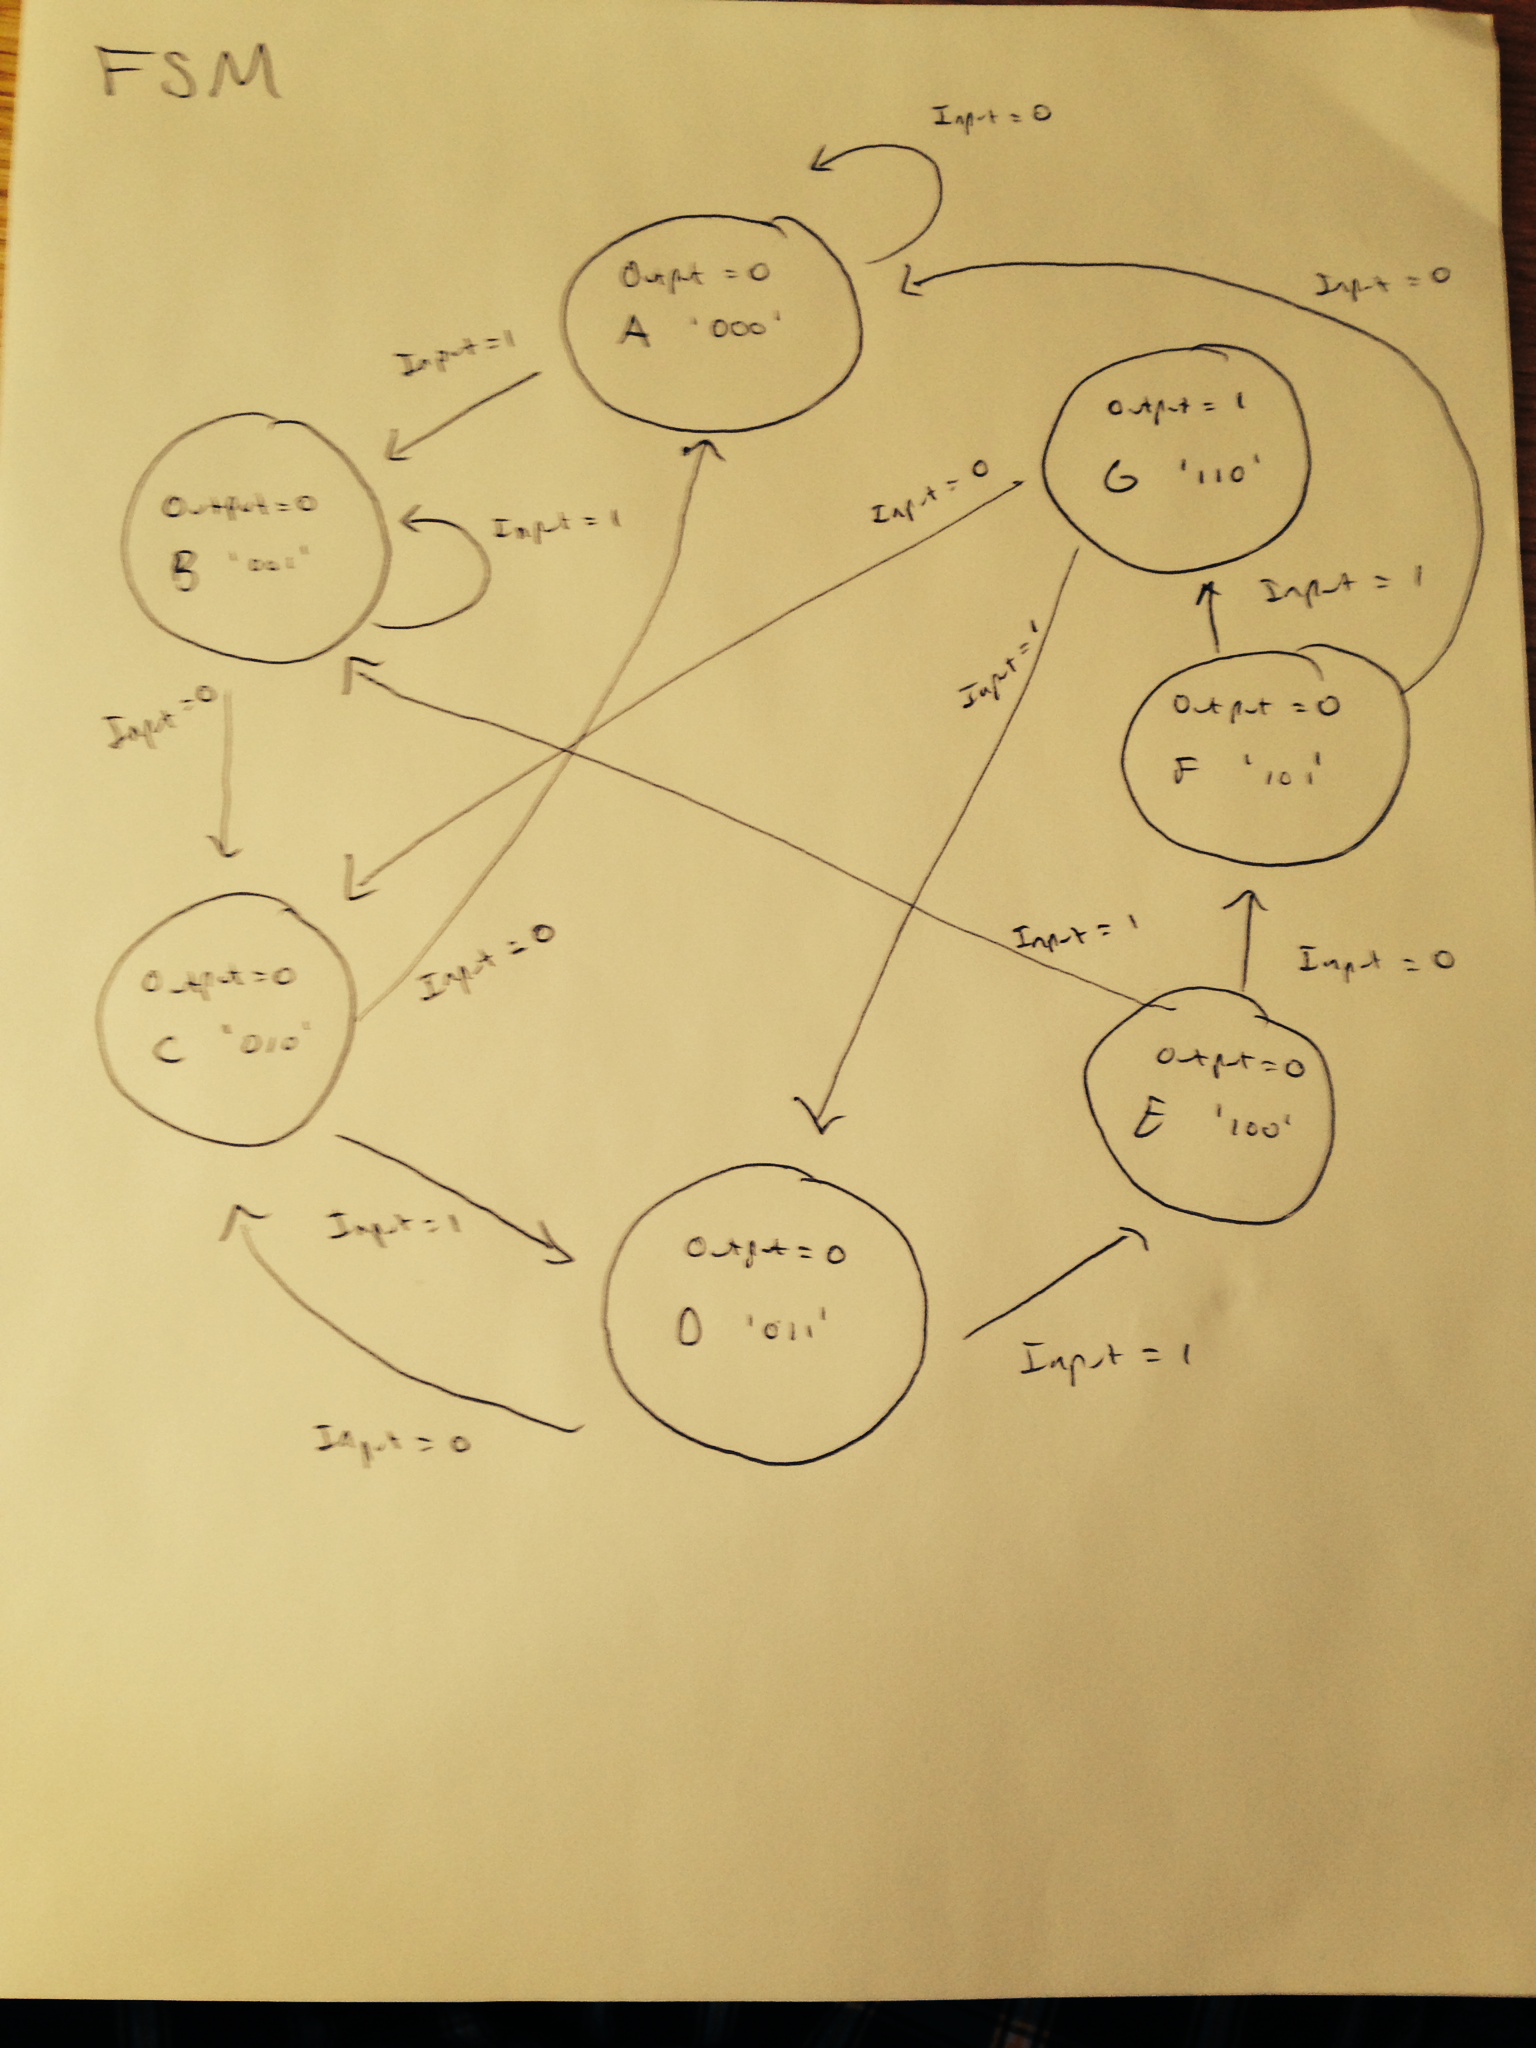 FSM
Input = 0
Output = 0
A '000'
Input = 0
Input = 1
Output = 1
G '110'
Input = 0
Output = 0
B "001"
Input = 1
Input = 1
Input = 1
Input = 0
Output = 0
F '101'
Input = 1
Input = 0
Input = 0
Output = 0
C "010"
Output = 0
E '100'
Input = 1
Output = 0
D '011'
Input = 1
Input = 0